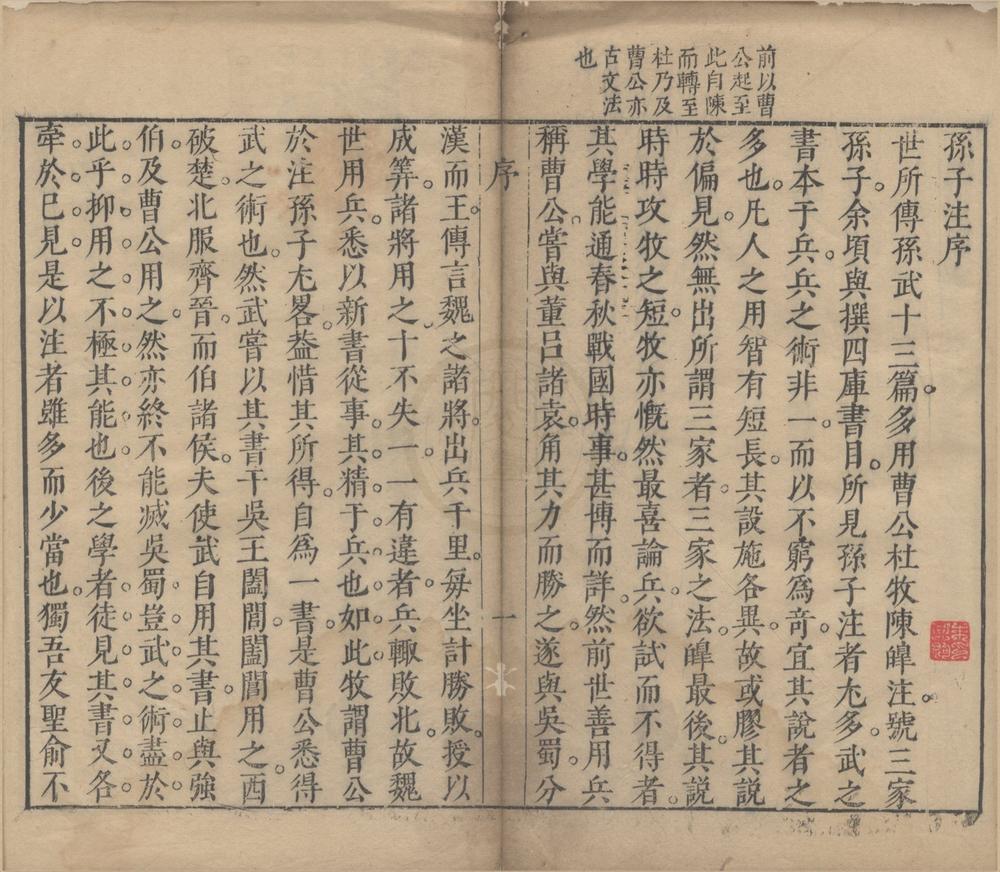 前以曹
公起至
此自陳
而轉至
杜乃及
曹公亦
古文法
也
孫子注序
世所傳孫武十三篇多用曹公杜牧陳皥注號三家
孫子余頃與撰四庫書目所見孫子注者尤多武之
書本于兵兵之術非一而以不窮爲竒宜其說者之
多也凡人之用智有短長其設施各異故或膠其說
於偏見然無出所謂三家者三家之法皥最後其說
時時攻牧之短牧亦慨然最喜論兵欲試而不得者
其學能通春秋戰國時事甚博而詳然前世善用兵
稱曹公嘗與董呂諸袁角其力而勝之遂與吳蜀分
序
一
漢而王傳言魏之諸將出兵千里每坐計勝敗授以
成筭諸將用之十不失一一有違者兵輙敗北故魏
世用兵悉以新書從事其精于兵也如此牧謂曹公
於注孫子尤畧葢惜其所得自爲一書是曹公悉得
武之術也然武嘗以其書干吳王闔閭闔閭用之西
破楚北服齊晉而伯諸侯夫使武自用其書止與強
伯及曹公用之然亦終不能滅吳蜀豈武之術盡於
此乎抑用之不極其能也後之學者徒見其書又各
牽於巳見是以注者雖多而少當也獨吾友聖俞不